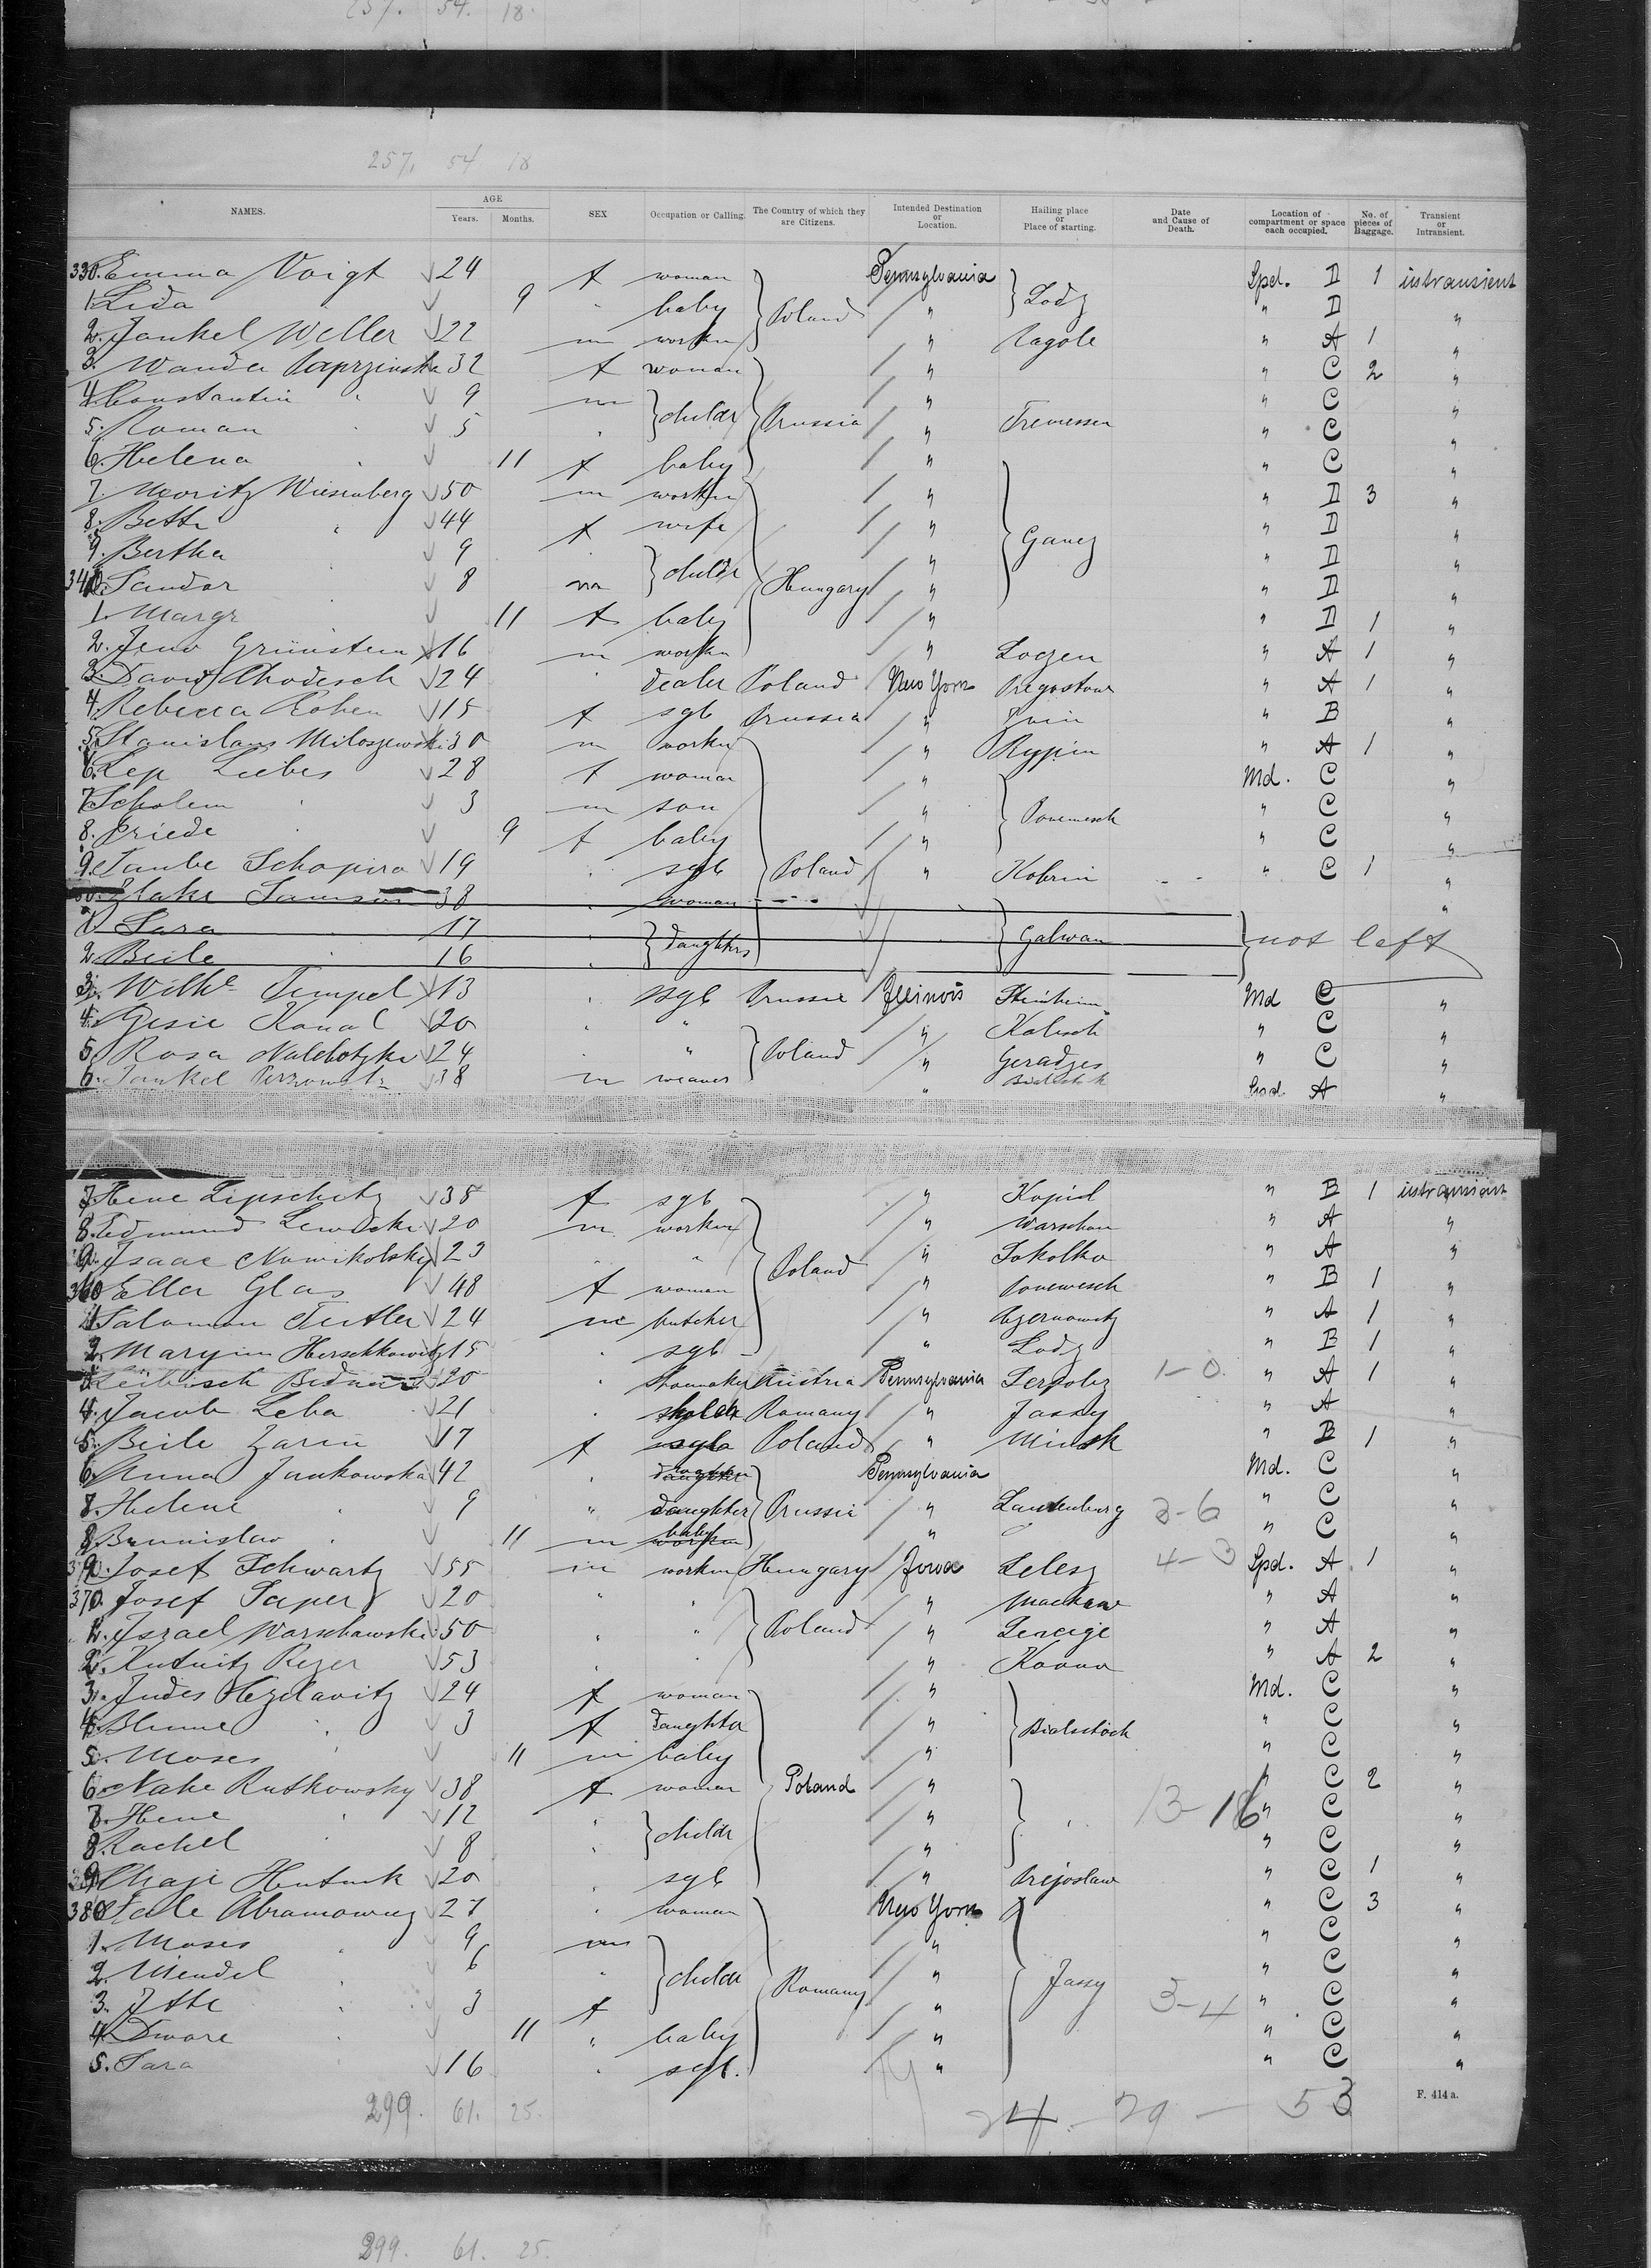 257. 54. 18.
257. 54 18
NAMES. AGE Years. Months. SEX Occupation or Calling. The Country of which they are Citizens. Intended Destination or Location. Hailing place or Place of starting. Date and Cause of Death. Location of compartment or space each occupied. No. of pieces of Baggage. Transient or Intransient.
330. Emma Voigt 24 f woman Poland Pennsylvania Lodz Spd. D 1 intransient
1. Lida 9 " baby " " D "
2. Jankel Weller 22 m workm " Ragole " A 1 "
3. Wanda 32 f woman Prussia " Tremessen " C 2 "
4. Constantin " 9 m childr " " C "
5. Roman " 5 " " " C "
6. Helena " 11 f baby " " C "
7. Moritz Wiesenberg 50 m workm Hungary " Ganez " D 3 "
8. Betti " 44 f wife " " D "
9. Bertha 9 " childr " " D "
340. Sandor 8 m " " D "
1. Margr 11 f baby " " D 1 "
2. Jeno Grünstein 16 m workm " Loczen " A 1 "
3. David Rhodesch 24 " dealer Poland New York " A 1 "
4. Rebecca Kohen 15 f sgl Prussia " " B "
5. Stanislaus Miloszewski 30 m workm " Rypin " A 1 "
6. Liebes 28 f woman " Ponewesch Md. C "
7. Scholem " 3 m son " " C "
8. Friede " 9 f baby " " C "
9. Taube Schapiro 19 " sgl Poland " Kobrin " C 1 "
50. Zlake Samson 38 " woman " "
1. Sara 17 " daughters Galwan not left
2. Beile " 16 "
3. Wilhe Tempel 13 " sgl Prussia Illinois Steinheim Md C "
4. Gesie Kanal 20 " " Poland " Kalisch " C "
5. Rosa 24 " " " Geradzes " C "
6. Jankel 38 m weaver " Bialistok Spd. A "
7. Hene Lipschitz 38 f sgl Poland " Kopiel " B 1 intransient
8. Edmund Lewicki 20 m workm " Warschau " A "
9. Isaac Nowikolsky 23 " " " Sokolka " A "
360 Etter Glas 48 f woman " Ponewesch " B 1 "
1. Salomon Teitler 24 m butcher " Czernowitz " A 1 "
2. Maryim Herschkowitz 15 " sgl " Lodz " B 1 "
3. Leibisch 20 " shomaker Austria Pennsylvania 1-0 " A 1 "
4. Jacob Leba 21 " Romany " Jassy " A "
5. Beile Zarin 17 f sgl Poland " Minsk " B 1 "
6. Anna Jankowska 42 " Prussia Pennsylvania Lautenburg Md. C "
7. Helene " 9 " daughter " 3-6 " C "
8. Brunislav " 11 m baby " " C "
9. Josef Schwartz 55 m workm Hungary Iowa Lelesz 4-3 Spd. A 1 "
370. Josef Saper 20 " " Poland " " A "
1. Israel Warschawski 50 " " " " A "
2. Kutnitz Rezer 53 " " " Kovno " A 2 "
3. Judes 24 f woman Poland " Bialistock Md. C "
4. Blume " 3 f daughter " " C "
5. Moses " 11 m baby " " C "
6. Nahe Rutkowsky 38 f woman " " C 2 "
7. Hene " 12 " childr " 13-16 " C "
8. Rachel " 8 " " " C "
9. 20 " sgl " " C 1 "
380 Abramowicz 27 " woman Romany New York Jassy " C 3 "
1. Moses " 9 m childr " " C "
2. Mendel " 6 " " " C "
3. Itte " 3 f " 3-4 " C "
4. Dware " 11 " baby " " C "
5. Sara 16 " sgl. " " C "
299. 61. 25. 24 - 29 - 53 F. 414 a.
299. 61. 25.